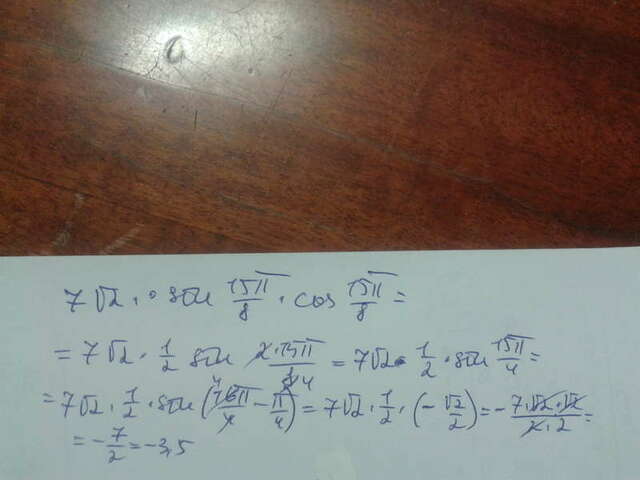 7√2 · sin 15π/8 · cos 15π/8 =
= 7√2 · 1/2 sin 2·15π/8 = 7√2 · 1/2 · sin 15π/4 =
= 7√2 · 1/2 · sin (16π/4 − π/4) = 7√2 · 1/2 · (−√2/2) = − 7·√2·√2/2·2 =
= −7/2 = −3,5